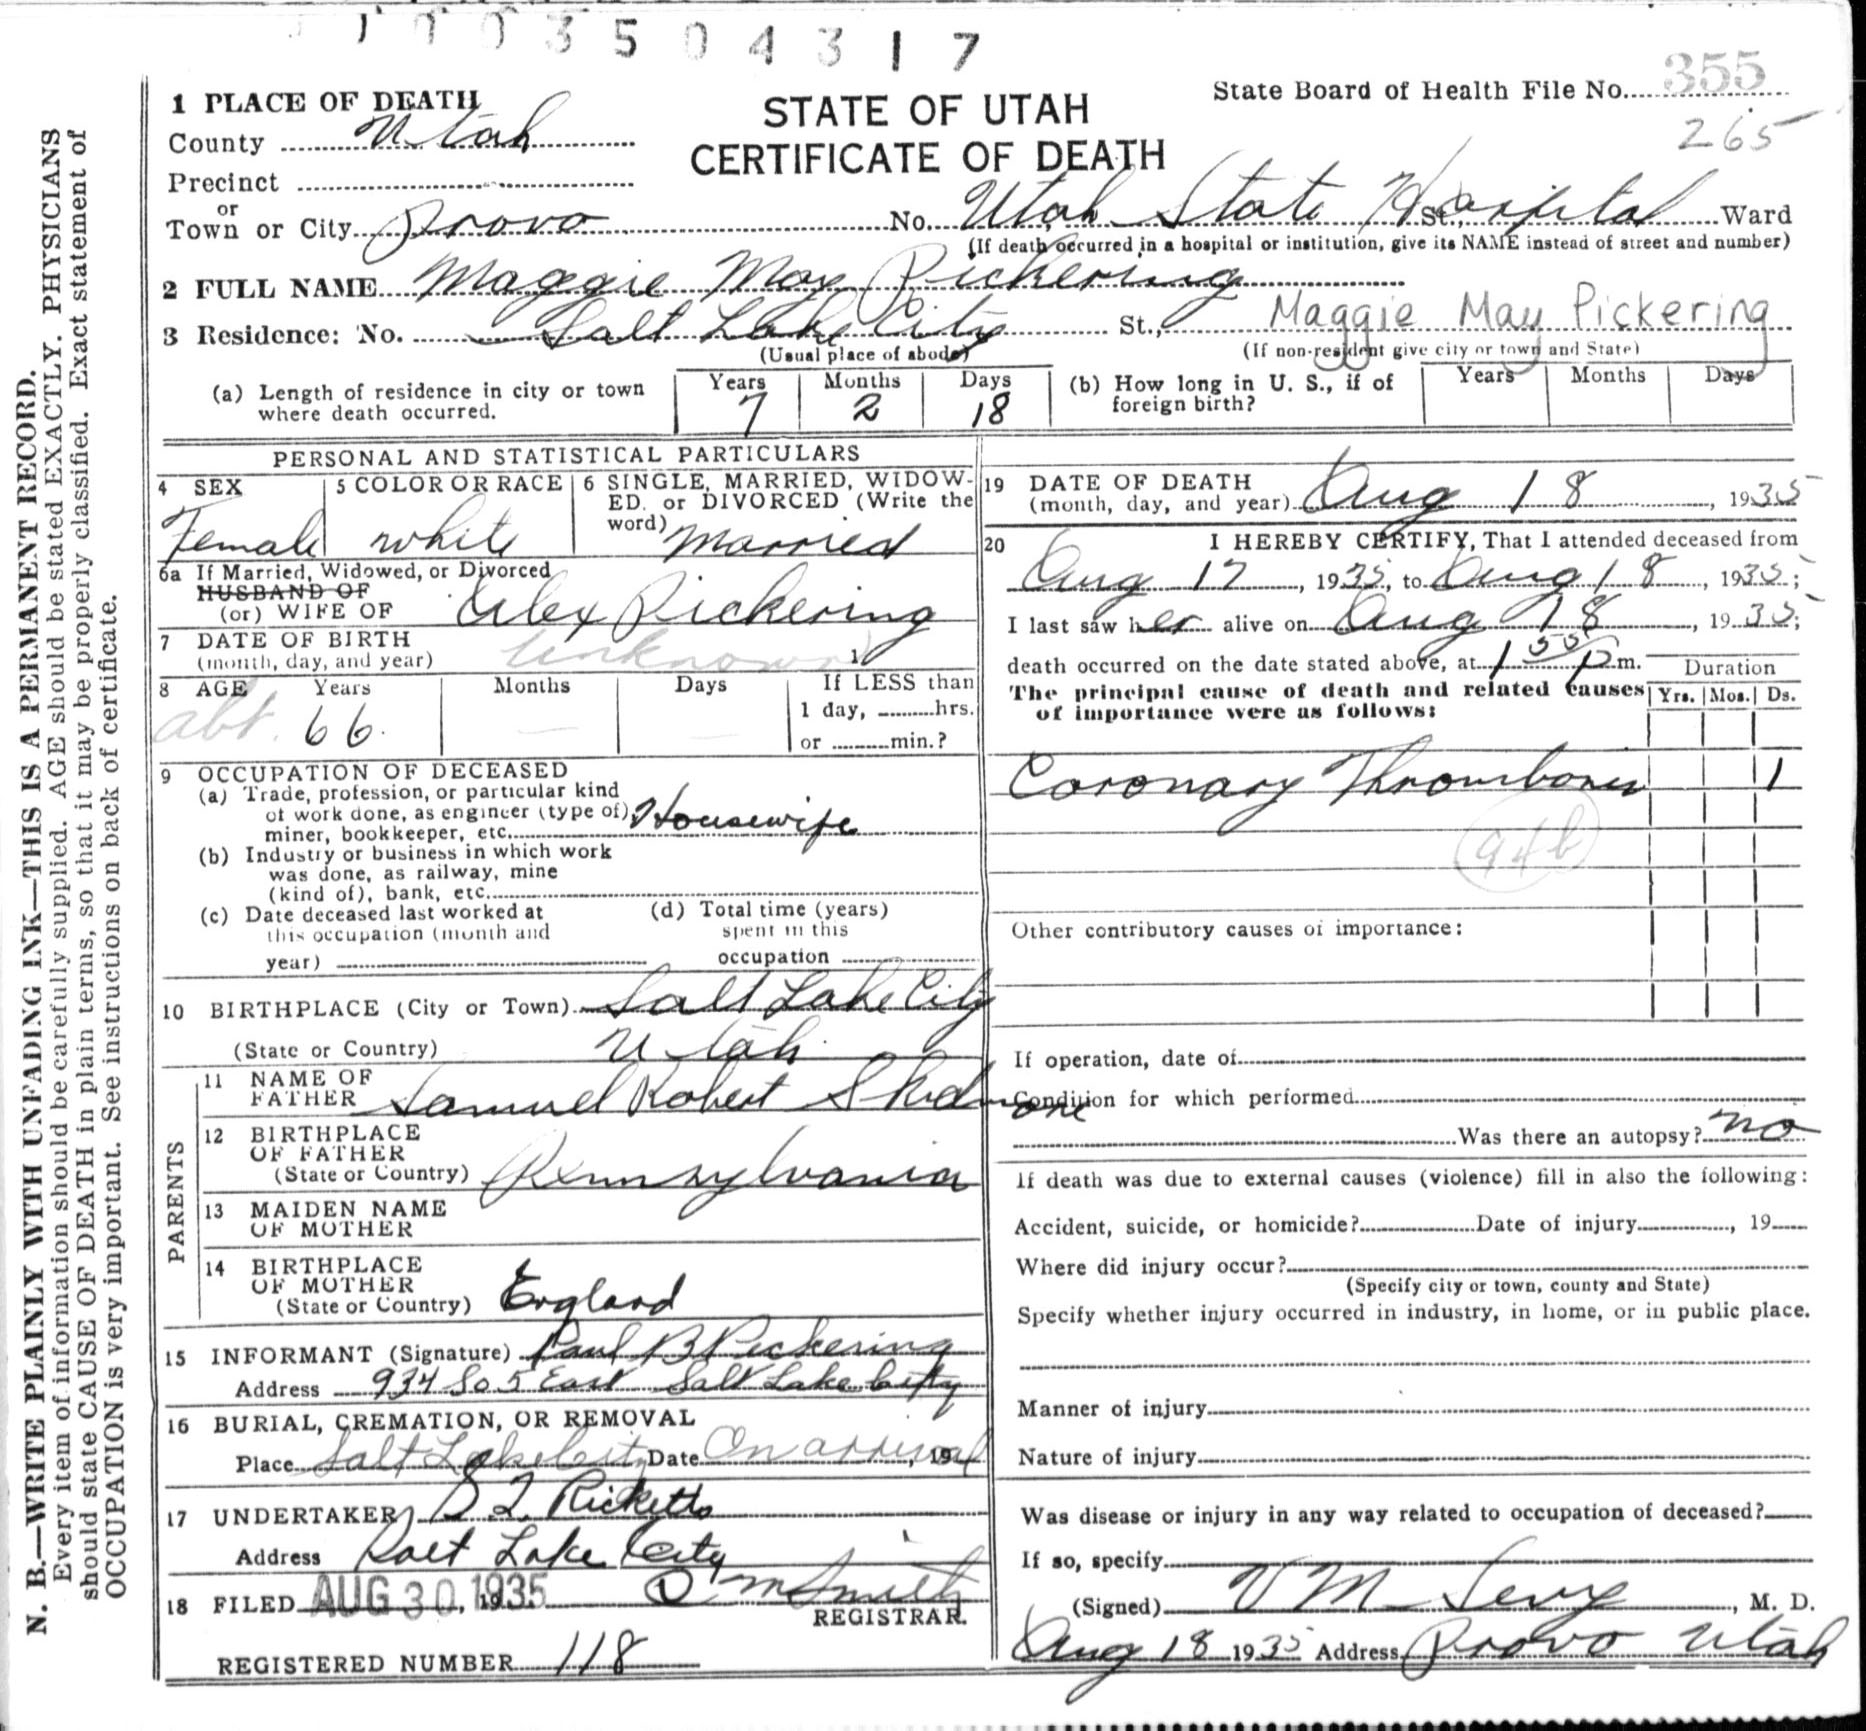 1 1 0 3 5 0 4 3 1 7
State Board of Health File No. 355
265
STATE OF UTAH
CERTIFICATE OF DEATH
1 PLACE OF DEATH
County Utah
Precinct
or
Town or City Provo No. Utah State Hospital St., Ward
(If death occurred in a hospital or institution, give its NAME instead of street and number)
2 FULL NAME Maggie May Pickering
3 Residence: No. Salt Lake City St., Maggie May Pickering
(Usual place of abode) (If non-resident give city or town and State)
(a) Length of residence in city or town where death occurred. Years 7 Months 2 Days 18
(b) How long in U. S., if of foreign birth? Years Months Days
PERSONAL AND STATISTICAL PARTICULARS
4 SEX Female
5 COLOR OR RACE white
6 SINGLE, MARRIED, WIDOW-
ED, or DIVORCED (Write the
word) Married
6a If Married, Widowed, or Divorced
HUSBAND OF
(or) WIFE OF Alex Pickering
7 DATE OF BIRTH
(month, day, and year) Unknown 1
8 AGE Years Months Days If LESS than
abt. 66 — — 1 day, hrs.
or min.?
9 OCCUPATION OF DECEASED
(a) Trade, profession, or particular kind
of work done, as engineer (type of),
miner, bookkeeper, etc. Housewife
(b) Industry or business in which work
was done, as railway, mine
(kind of), bank, etc.
(c) Date deceased last worked at
this occupation (month and
year)
(d) Total time (years)
spent in this
occupation
10 BIRTHPLACE (City or Town) Salt Lake City
(State or Country) Utah
PARENTS
11 NAME OF
FATHER Samuel Robert Skidmore
12 BIRTHPLACE
OF FATHER
(State or Country) Pennsylvania
13 MAIDEN NAME
OF MOTHER
14 BIRTHPLACE
OF MOTHER
(State or Country) England
15 INFORMANT (Signature) Paul B Pickering
Address 934 So 5 East Salt Lake City
16 BURIAL, CREMATION, OR REMOVAL
Place Salt Lake City Date On arrival, 19
17 UNDERTAKER Ricketts
Address Salt Lake City
18 FILED AUG 30, 1935 Smith
REGISTRAR.
REGISTERED NUMBER 118
19 DATE OF DEATH
(month, day, and year) Aug 18, 1935
20 I HEREBY CERTIFY, That I attended deceased from
Aug 17, 1935, to Aug 18, 1935;
I last saw her alive on Aug 18, 1935;
death occurred on the date stated above, at 1 55 P m.
The principal cause of death and related causes
of importance were as follows:
Duration
Yrs. Mos. Ds.
Coronary Thrombosis 1
94b
Other contributory causes of importance:
If operation, date of
Condition for which performed
Was there an autopsy? no
If death was due to external causes (violence) fill in also the following:
Accident, suicide, or homicide? Date of injury, 19
Where did injury occur?
(Specify city or town, county and State)
Specify whether injury occurred in industry, in home, or in public place.
Manner of injury
Nature of injury
Was disease or injury in any way related to occupation of deceased?
If so, specify
(Signed) V M Sevy, M. D.
Aug 18 1935 Address Provo Utah
N. B.—WRITE PLAINLY WITH UNFADING INK—THIS IS A PERMANENT RECORD.
Every item of information should be carefully supplied. AGE should be stated EXACTLY. PHYSICIANS
should state CAUSE OF DEATH in plain terms, so that it may be properly classified. Exact statement of
OCCUPATION is very important. See instructions on back of certificate.